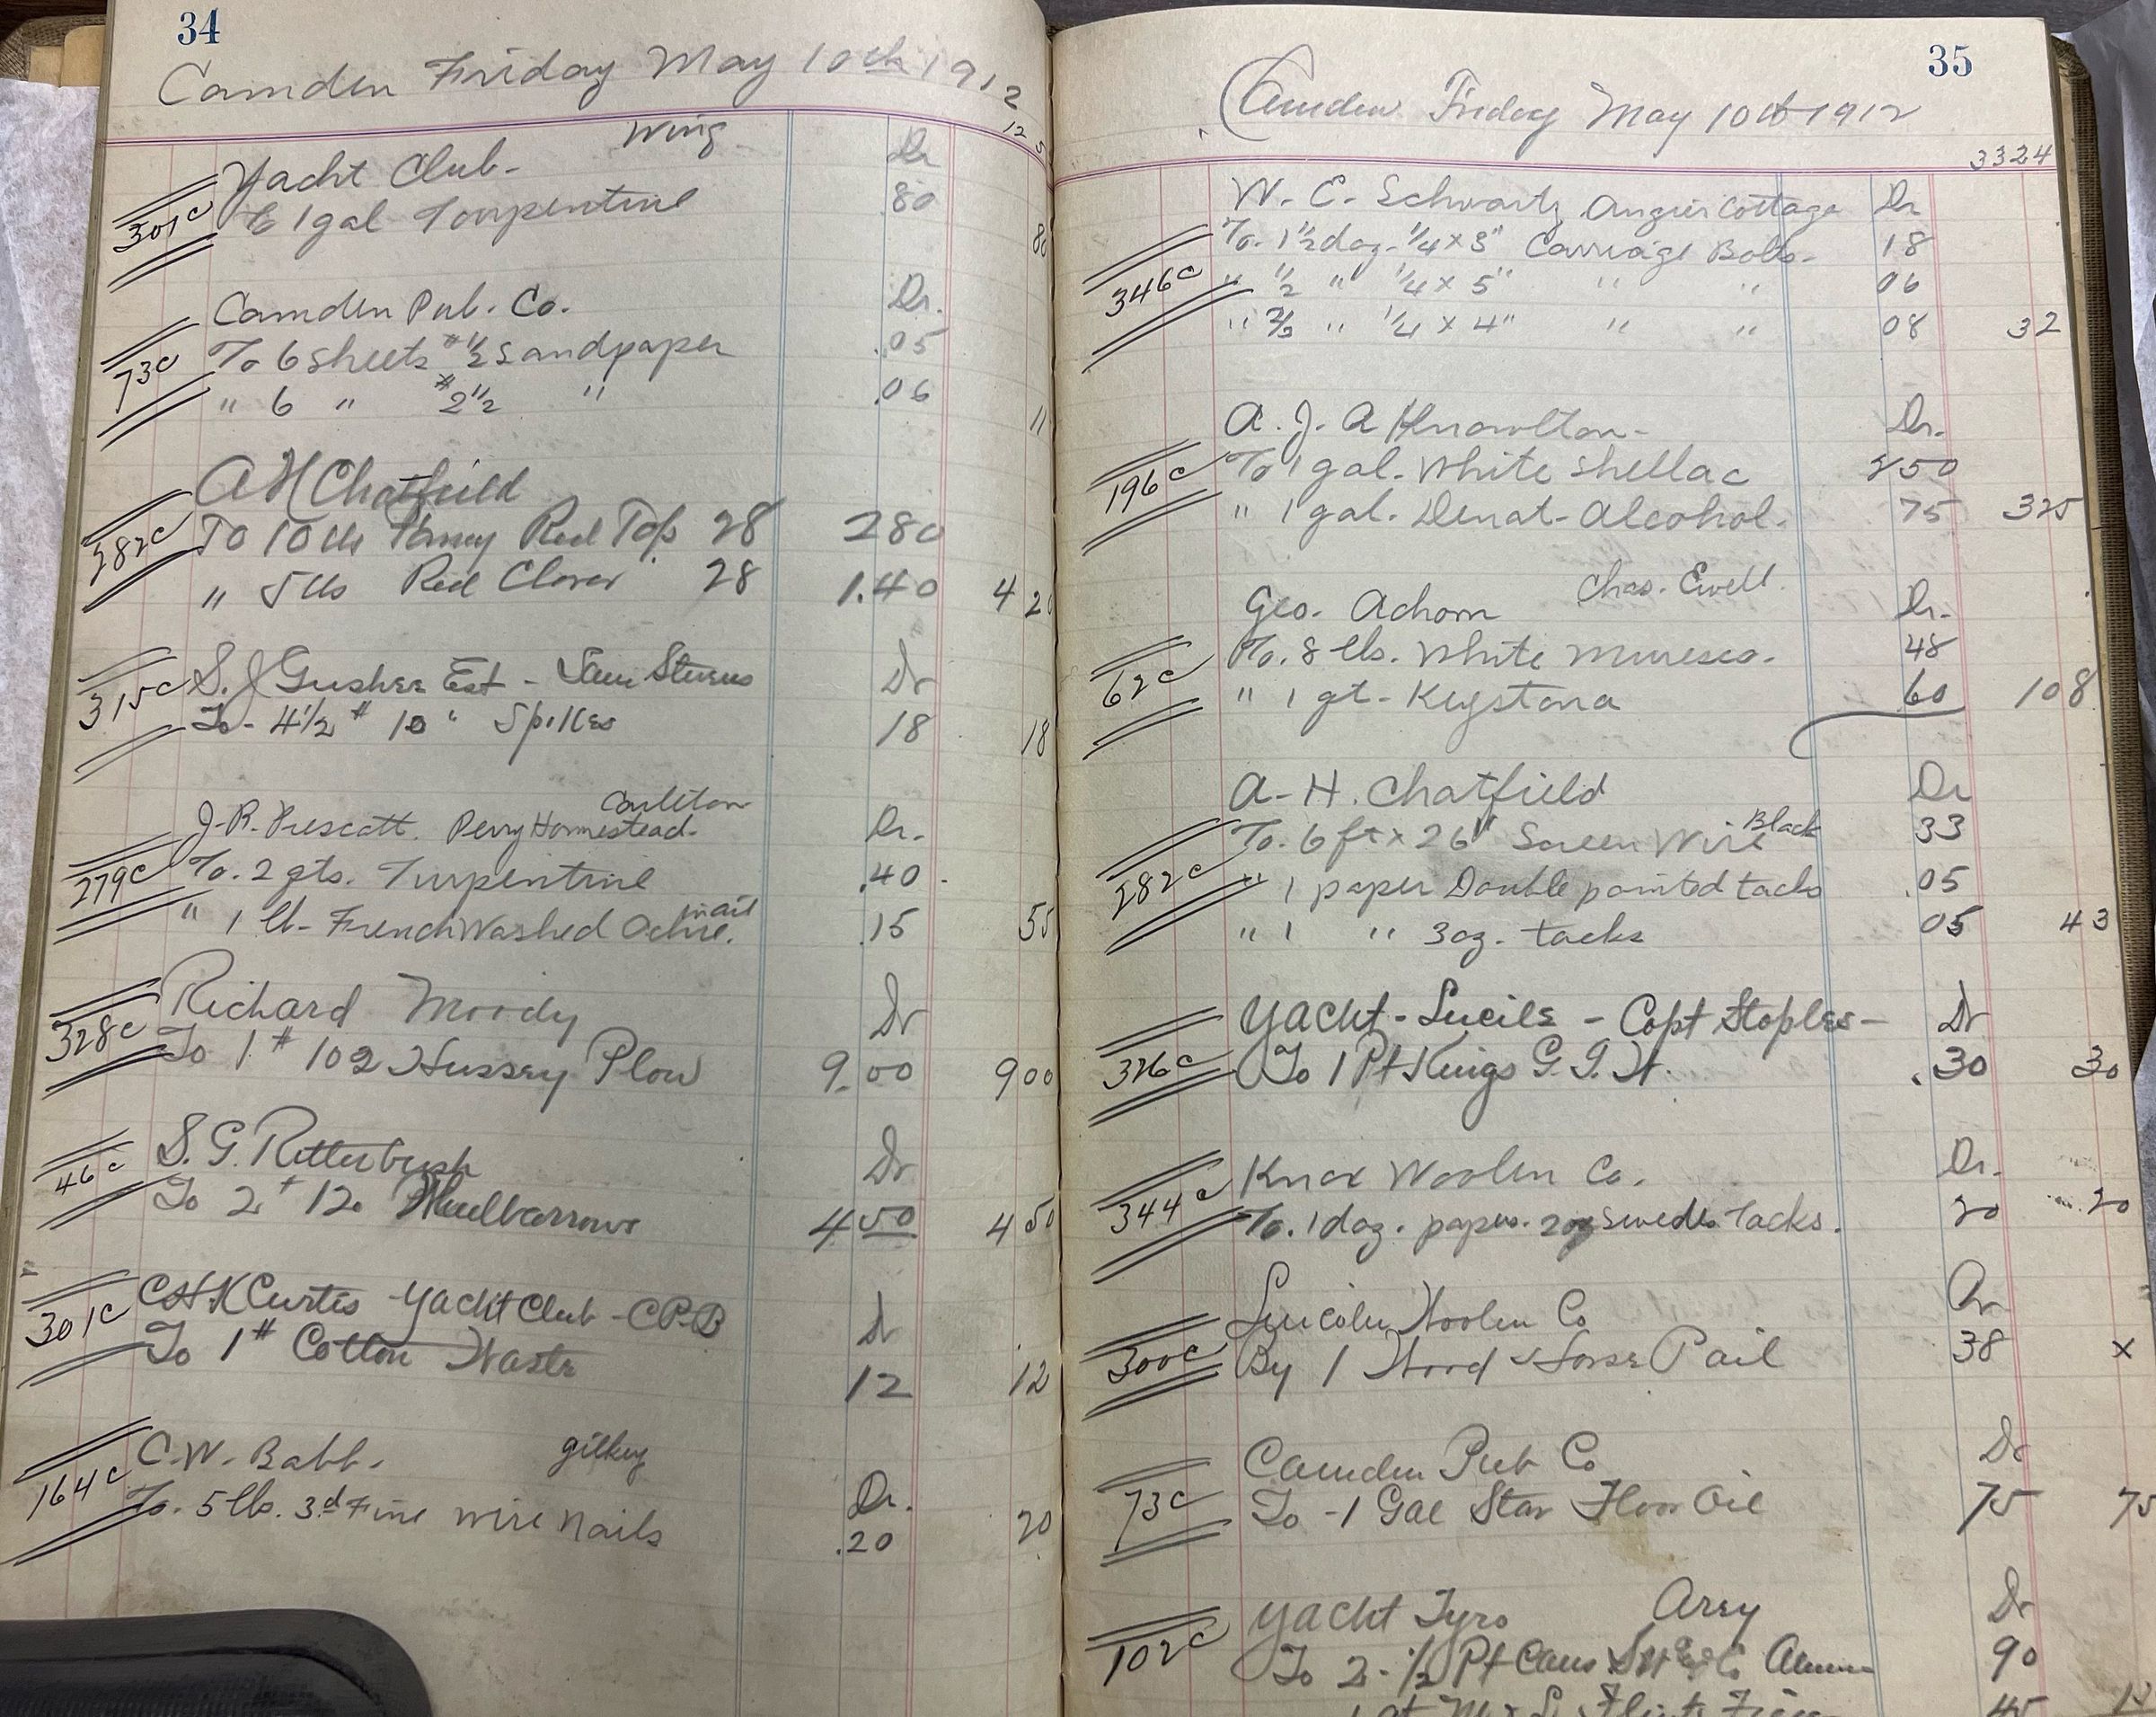 34
Camden Friday May 10th 1912
12 5
Yacht Club - Wing Dr
301c To 1 gal Turpentine 80 80
Camden Pub. Co. Dr.
73c To 6 sheets #1/2 Sandpaper .05
" 6 " #2 1/2 " .06 11
A H Chatfield
282c To 10 lbs Fancy Red Top 28 280
" 5 lbs Red Clover 28 1.40 4 20
315c S. J Gushee Est - Sam Stevens Dr
To - 4 1/2 # 10 " Spikes 18 18
Carleton
J. R. Prescott. Perry Homestead. Dr.
279c To. 2 qts. Turpentine .40
" 1 lb - French Washed Ochre. .15 55
Richard Moody Dr
328c To 1 # 102 Hussey Plow 9.00 9 00
S. G. Ritterbush Dr
46c To 2 # 12 Wheelbarrows 4 50 4 50
301c C H K Curtis - Yacht Club - C P. B Dr
To 1 # Cotton Waste 12 12
C. W. Babb. Gilkey Dr.
164c To. 5 lbs. 3d Fine wire nails .20 20
35
Camden Friday May 10th 1912
3324
W. E. Schwartz Angier Cottage Dr
346c To. 1 1/2 doz - 1/4 x 3" Carriage Bolts - 18
" 1/2 " 1/4 x 5" " " 06
" 2/3 " 1/4 x 4" " " 08 32
A. J. A Knowlton - Dr.
196c To 1 gal. White Shellac 2 50
" 1 gal. Denat - Alcohol. 75 325
Chas. Ewell.
Geo. Achorn Dr.
62c To. 8 lbs. White Muresco. 48
" 1 qt - Keystona 60 108
A - H. Chatfield Dr
282c To. 6 ft x 26" Screen Wire Black 33
" 1 paper Double pointed tacks .05
" 1 " 3 oz. tacks 05 43
Yacht - Lucile - Capt Staples - Dr
326c To 1 Pt Kings .30 30
Knox Woolen Co. Dr.
344c To. 1 doz. papers. 2 oz Swedes Tacks. 20 20
Lincoln Woolen Co Cr
300c By 1 Wood Horse Pail 38 x
Camden Pub Co Dr
73c To - 1 Gal Star Floor Oil 75 75
Yacht Tyro Arey Dr
102c To 2 - 1/2 Pt Cans 90
45